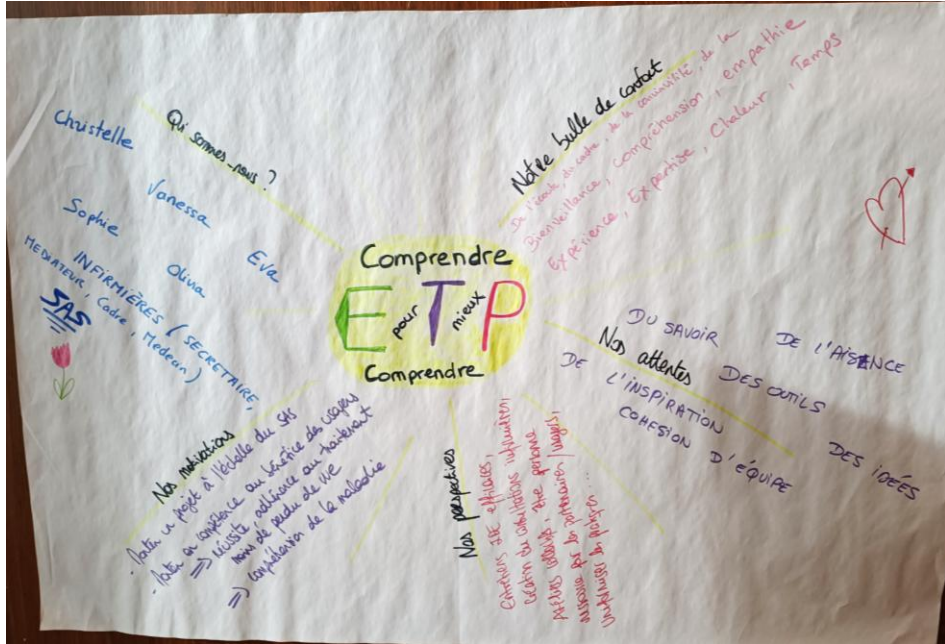 Comprendre
ETP
pour mieux
Comprendre
Qui sommes-nous ?
Christelle
Vanessa
Sophie
Eva
Olivia
INFIRMIÈRES (SECRETAIRE,
MEDIATEUR, Cadre, Medecin)
SAS
Notre bulle de confort
De l'écoute, du cadre, de la convivialité, de la
Bienveillance, compréhension, empathie
Expérience, Expertise, Chaleur, Temps
Nos attentes
DU SAVOIR
DE L'AISENCE
DES OUTILS
DE L'INSPIRATION
COHESION D'ÉQUIPE
DES IDEÉS
Nos perspectives
Entretiens IDE efficaces,
création de consultations infirmières,
Ateliers collectifs, être personne
ressource par les partenaires/usagers,
Nos motivations
- Porter un projet à l'échelle du SAS
- Monter en compétence au bénéfice des usagers
=> réussite, adhérence au traitement
moins de perdu de vue
=> compréhension de la maladie